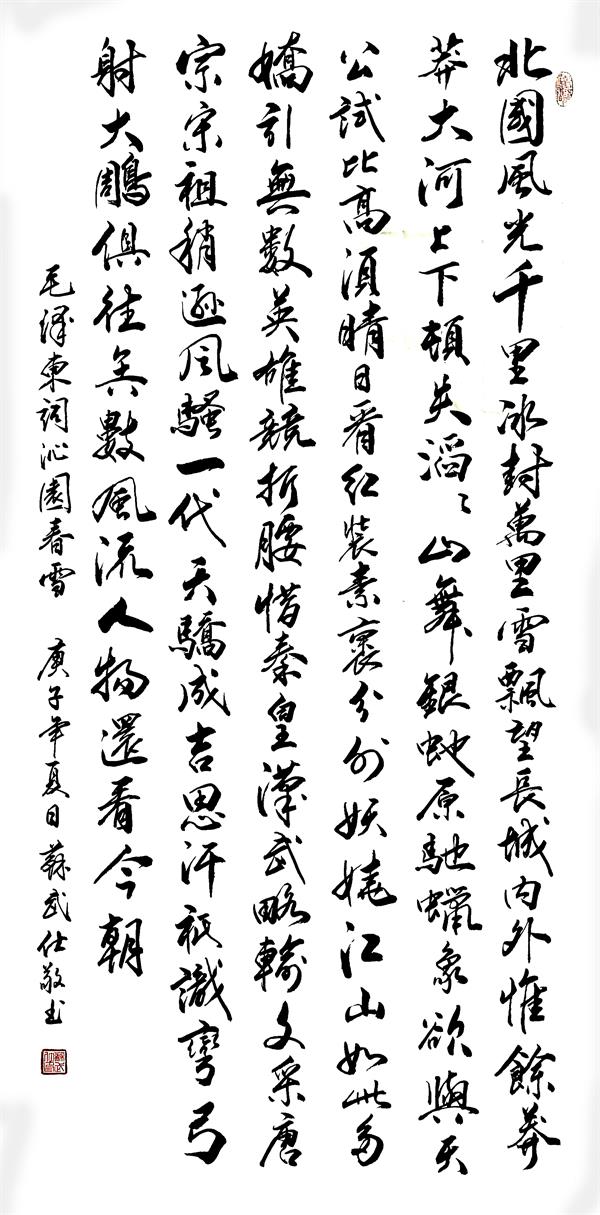 北國風光千里冰封萬里雪飄望長城内外惟餘莽
莽大河上下頓失滔〻山舞銀虵原馳蠟象欲與天
公試比高須晴日看紅裝素裹分外妖嬈江山如此多
嬌引無數英雄競折腰惜秦皇漢武略輸文采唐
宗宋祖稍遜風騷一代天驕成吉思汗祇識彎弓
射大鵰俱往矣數風流人物還看今朝
毛澤東詞沁園春雪 庚子年夏日蘇武仕敬書